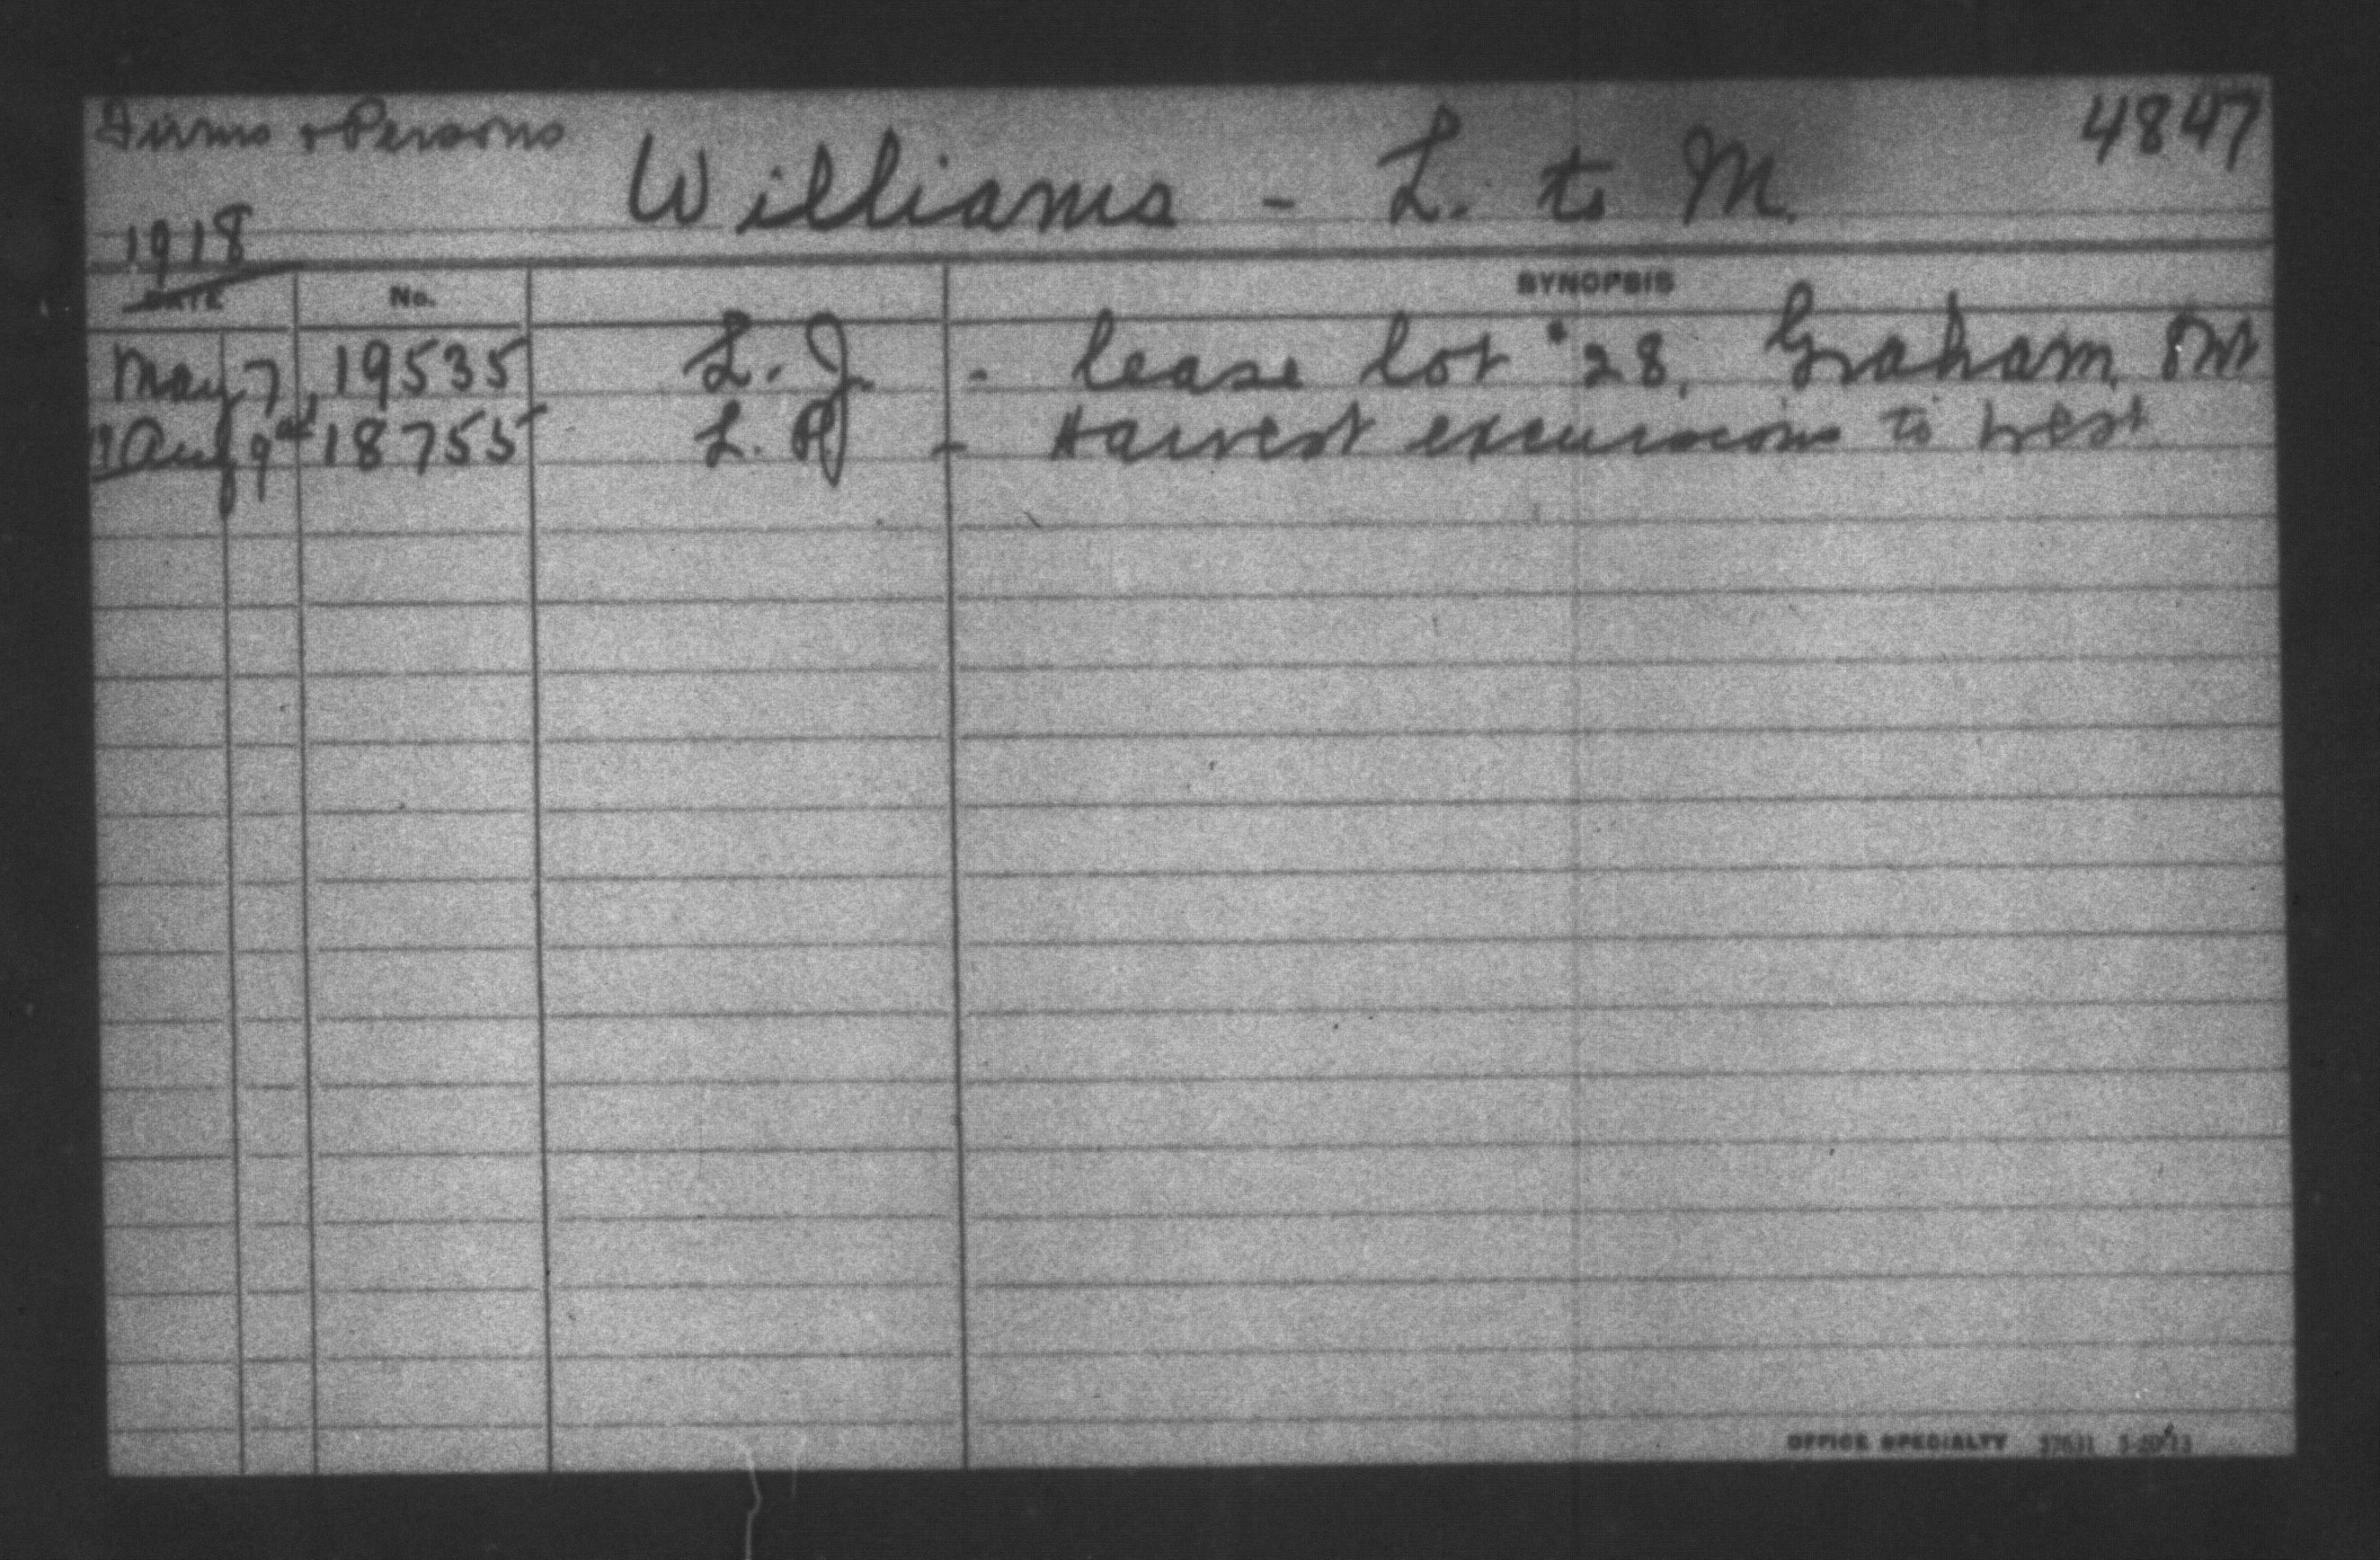 Firms & Persons
4847
Williams - L. to M.
1918
DATE No. SYNOPSIS
May 7 19535 L. J. - lease lot #28, Graham, Ont
Aug 9 18755 L. - Harvest excursions to West
OFFICE SPECIALTY